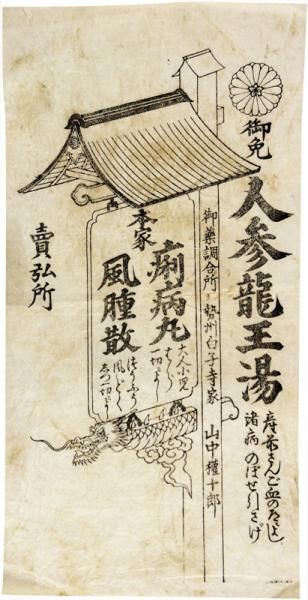 御免
人参龍王湯
産前さんご血のみちによし
諸病 のぼせ引さげ
御薬調合所 勢州白子寺家 山中權十郎
本家
痢病丸
大人小児
一切よし
風腫散
一切よし
賣弘所